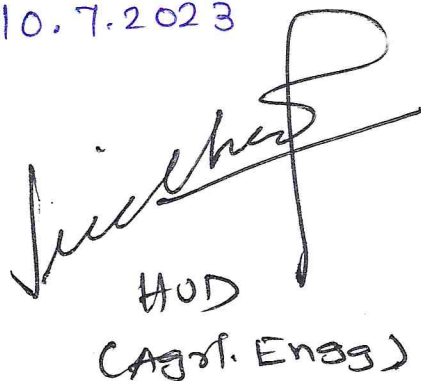 10.7.2023
HOD
(Agrl. Engg)